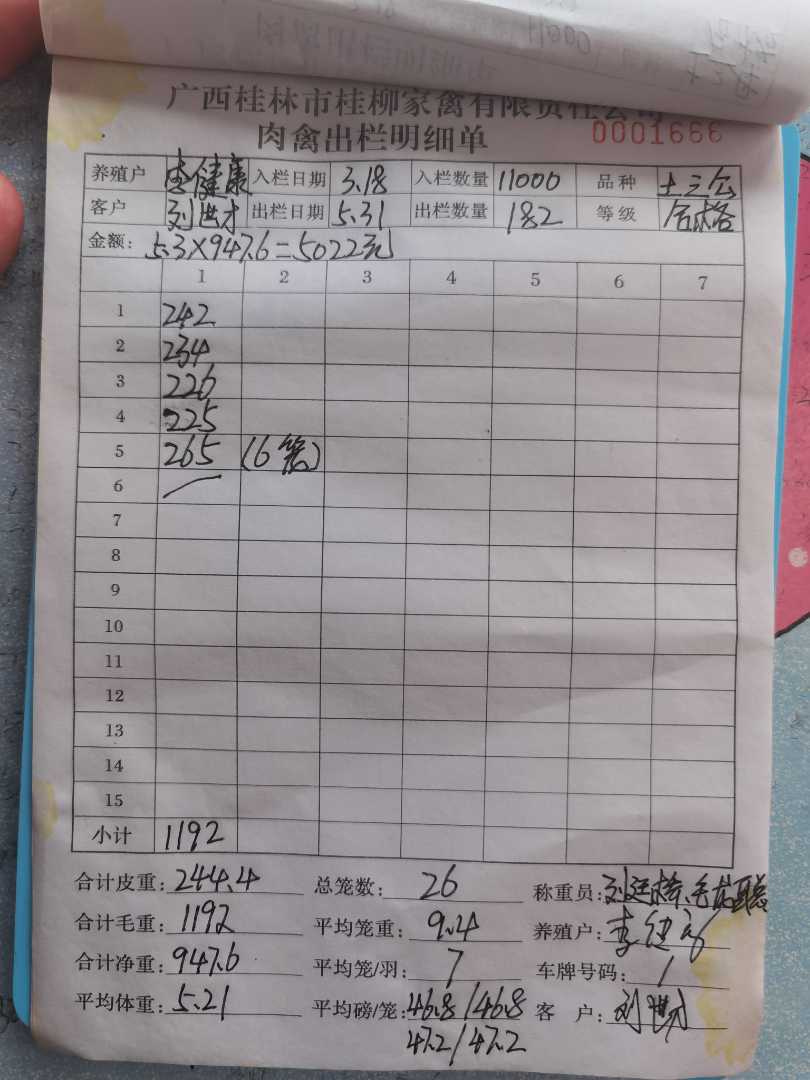 广西桂林市桂柳家禽有限责任公司
肉禽出栏明细单 0001666
养殖户 李健康 入栏日期 3.18 入栏数量 11000 品种 土三公
客户 刘世才 出栏日期 5.31 出栏数量 182 等级 合格
金额: 5.3×947.6=5022元
1 2 3 4 5 6 7
1 242
2 234
3 226
4 225
5 265 (6笼)
6
7
8
9
10
11
12
13
14
15
小计 1192
合计皮重: 244.4 总笼数: 26 称重员:
合计毛重: 1192 平均笼重: 9.4 养殖户: 李健康
合计净重: 947.6 平均笼/羽: 7 车牌号码: /
平均体重: 5.21 平均磅/笼: 46.8/46.8 客 户: 刘世才
47.2/47.2